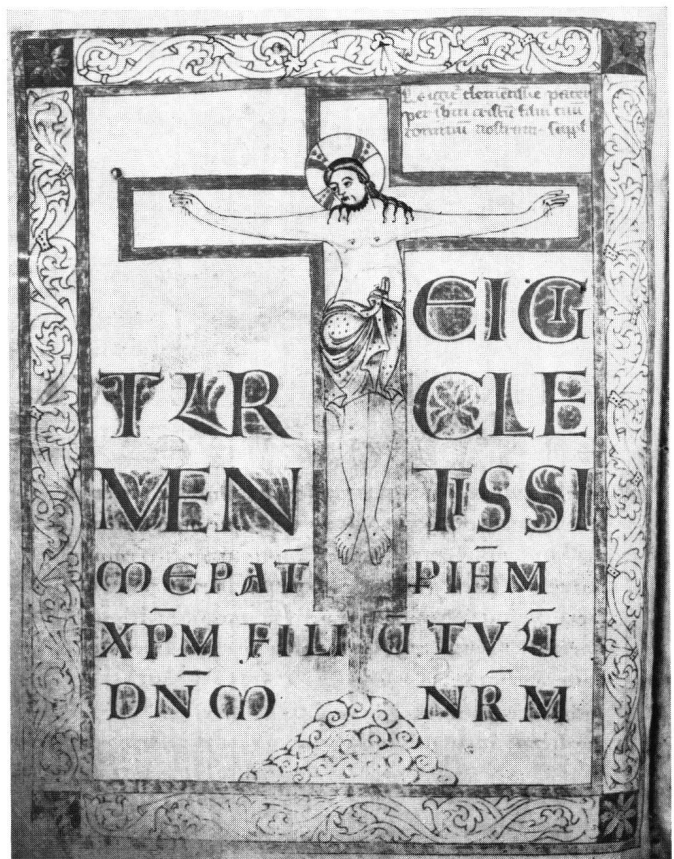 Te igit̄ clementissīe pater
per ihm cristū filiū tuū
dominū nostrum. suppl
EIGI
TUR CLE
MEN TISSI
ME PAT̄ P IH̄M
XP̄M FILIŪ TVŪ
DN̄M NR̄M